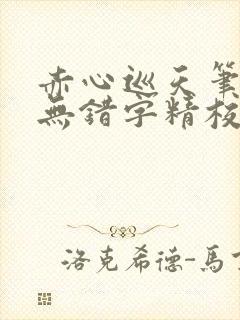 赤心巡天筆
無錯字精校
洛克希德-馬